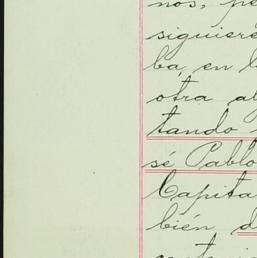 nos, pe
siguiere
ba, en l
otra al
tando
sé Pablo
Capita
bién d